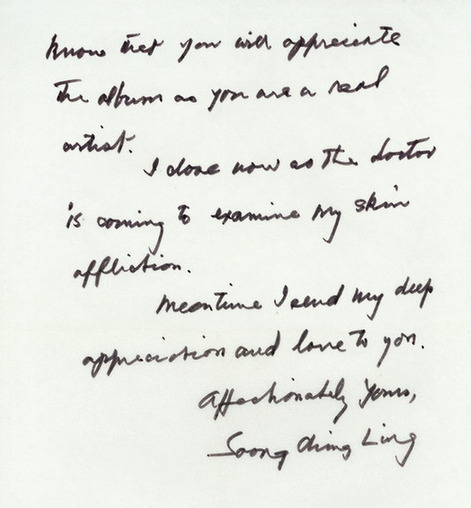 know that you will appreciate
the album as you are a real
artist.
I close now as the doctor
is coming to examine my skin
affliction.
Meantime I send my deep
appreciation and love to you.
Affectionately Yours,
Soong Ching Ling